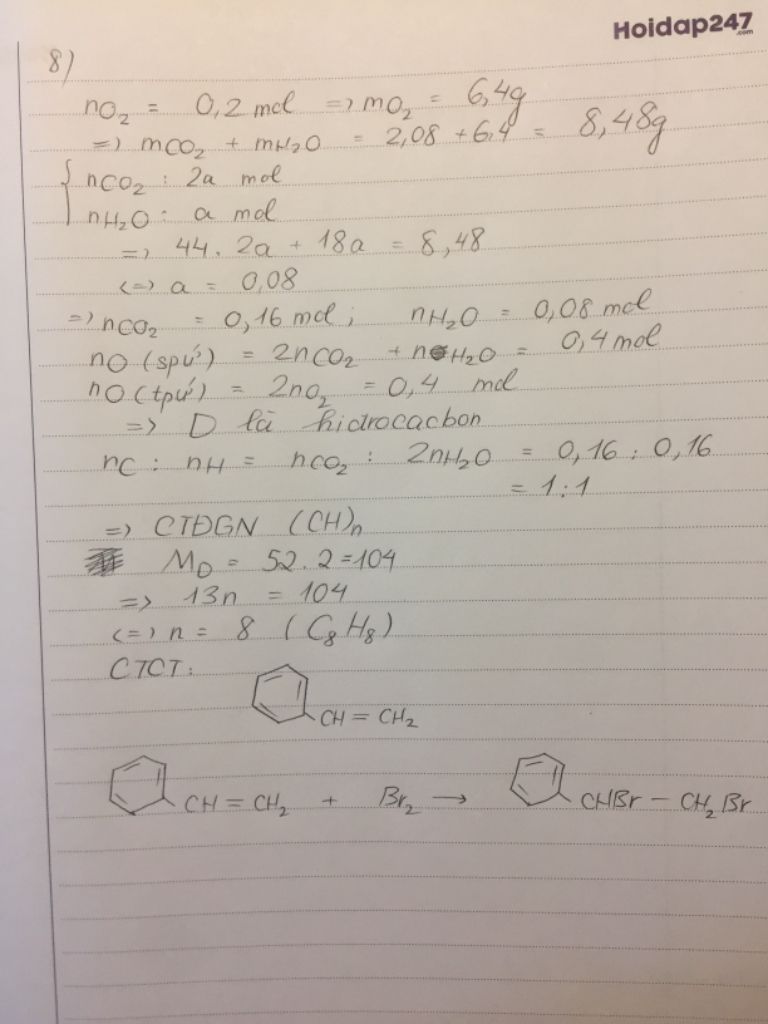 Hoidap247
.com
8)
nO₂ = 0,2 mol => mO₂ = 6,4g
=> mCO₂ + mH₂O = 2,08 + 6,4 = 8,48g
{ nCO₂ : 2a mol
nH₂O : a mol
=> 44. 2a + 18a = 8,48
<=> a = 0,08
=> nCO₂ = 0,16 mol ; nH₂O = 0,08 mol
nO (spứ) = 2nCO₂ + nH₂O = 0,4 mol
nO (tpứ) = 2nO₂ = 0,4 mol
=> D là hidrocacbon
nC : nH = nCO₂ : 2nH₂O = 0,16 : 0,16
= 1:1
=> CTĐGN (CH)n
M_D = 52.2 = 104
=> 13n = 104
<=> n = 8 (C₈H₈)
CTCT:
CH = CH₂
CH = CH₂ + Br₂ → CHBr – CH₂Br